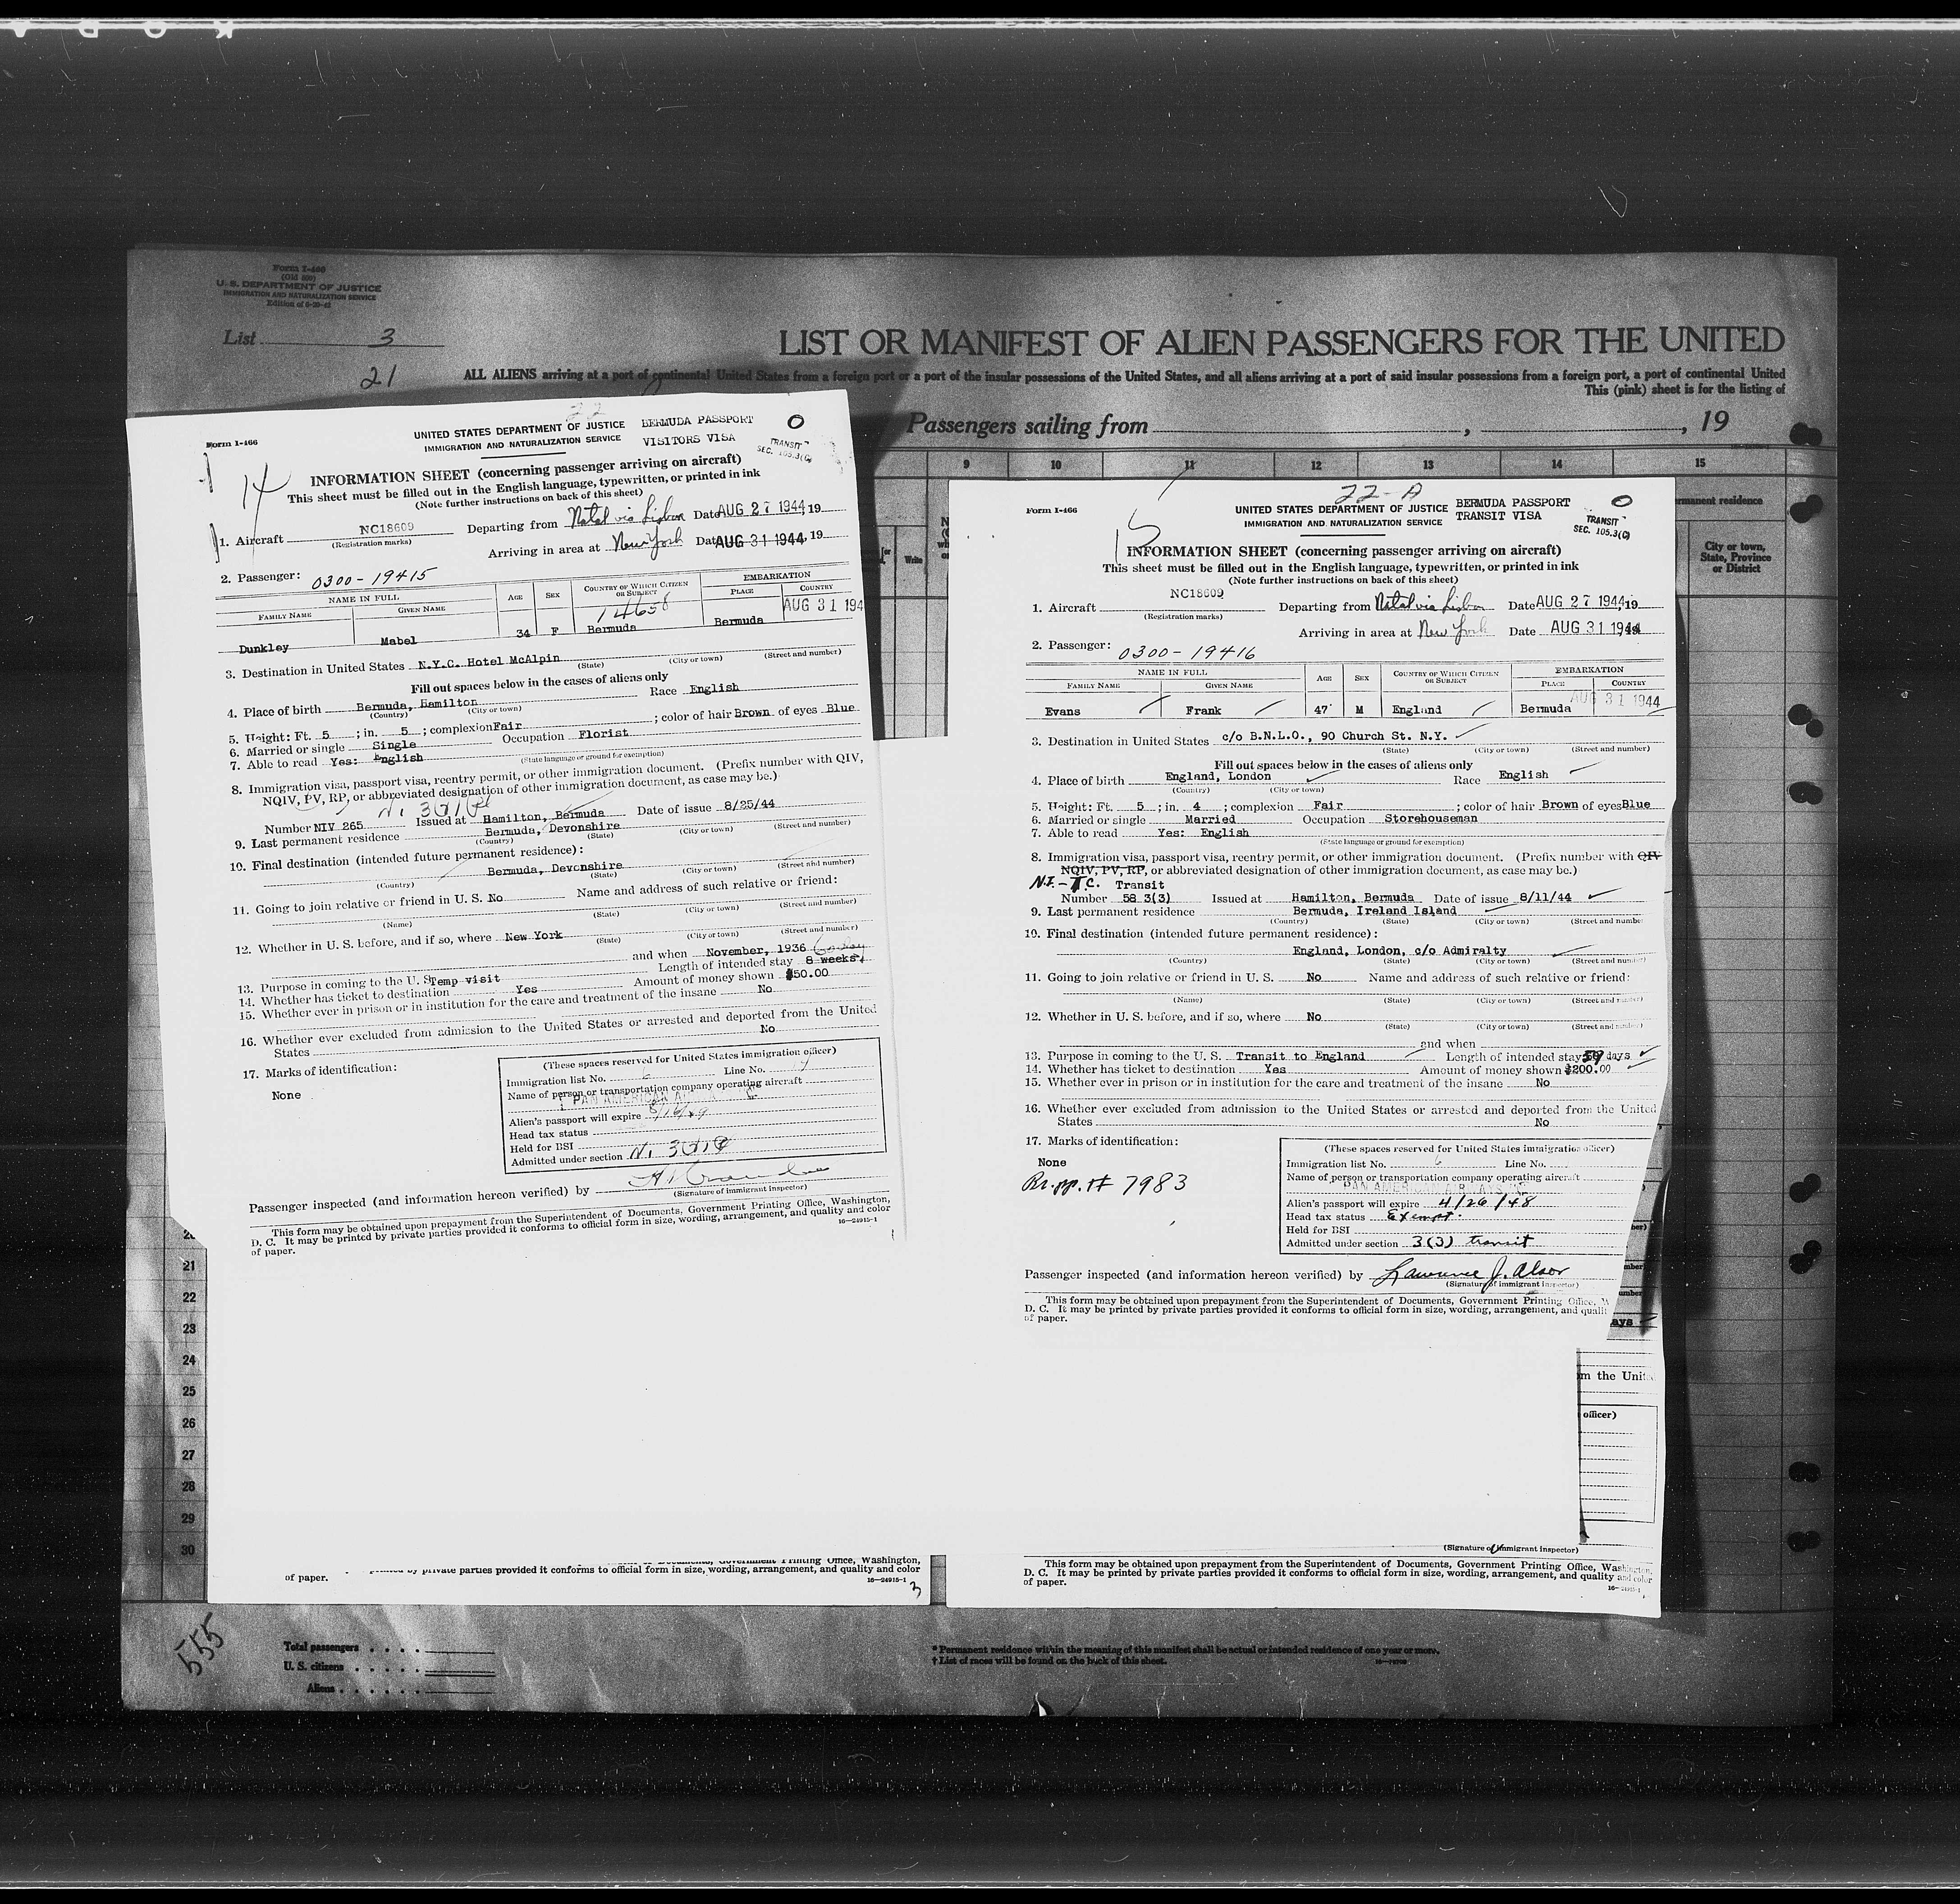 Form I-466
(Old 500)
U. S. DEPARTMENT OF JUSTICE
IMMIGRATION AND NATURALIZATION SERVICE
List 3
21
LIST OR MANIFEST OF ALIEN PASSENGERS FOR THE UNITED
ALL ALIENS arriving at a port of continental United States from a foreign port or a port of the insular possessions of the United States, and all aliens arriving at a port of said insular possessions from a foreign port, a port of continental United
This (pink) sheet is for the listing of
Passengers sailing from , , 19
9 10 11 12 13 14 15
Write
permanent residence
City or town,
State, Province
or District
22
Form I-466
UNITED STATES DEPARTMENT OF JUSTICE BERMUDA PASSPORT
IMMIGRATION AND NATURALIZATION SERVICE VISITORS VISA
TRANSIT
SEC. 105.3(C)
14
INFORMATION SHEET (concerning passenger arriving on aircraft)
This sheet must be filled out in the English language, typewritten, or printed in ink
(Note further instructions on back of this sheet)
1. Aircraft NC18609 Departing from Natal via Lisbon Date AUG 27 1944, 19
(Registration marks)
Arriving in area at New York Date AUG 31 1944, 19
2. Passenger: 0300-19415
NAME IN FULL AGE SEX COUNTRY OF WHICH CITIZEN OR SUBJECT EMBARKATION
FAMILY NAME GIVEN NAME PLACE COUNTRY
14658 AUG 31 194
Dunkley Mabel 34 F Bermuda Bermuda
3. Destination in United States N.Y.C. Hotel McAlpin
(State) (City or town) (Street and number)
Fill out spaces below in the cases of aliens only
4. Place of birth Bermuda, Hamilton Race English
(Country) (City or town)
5. Height: Ft. 5 ; in. 5 ; complexion Fair ; color of hair Brown of eyes Blue
6. Married or single Single Occupation Florist
7. Able to read Yes: English
(State language or ground for exemption)
8. Immigration visa, passport visa, reentry permit, or other immigration document. (Prefix number with QIV,
NQIV, PV, RP, or abbreviated designation of other immigration document, as case may be.)
Number NIV 265 Issued at Hamilton, Bermuda Date of issue 8/25/44
9. Last permanent residence Bermuda, Devonshire
(Country) (State) (City or town) (Street and number)
10. Final destination (intended future permanent residence):
Bermuda, Devonshire
(Country) (State) (City or town) (Street and number)
11. Going to join relative or friend in U. S. No Name and address of such relative or friend:
(Name) (State) (City or town) (Street and number)
12. Whether in U. S. before, and if so, where New York
(State) (City or town) (Street and number)
and when November, 1936
13. Purpose in coming to the U. S. Temp visit Length of intended stay 8 weeks,
14. Whether has ticket to destination Yes Amount of money shown $50.00
15. Whether ever in prison or in institution for the care and treatment of the insane No
16. Whether ever excluded from admission to the United States or arrested and deported from the United
States No
17. Marks of identification:
None
(These spaces reserved for United States immigration officer)
Immigration list No. 6 Line No.
Name of person or transportation company operating aircraft
PAN AMERICAN
Alien's passport will expire
Head tax status
Held for BSI
Admitted under section
Passenger inspected (and information hereon verified) by
(Signature of immigrant inspector)
This form may be obtained upon prepayment from the Superintendent of Documents, Government Printing Office, Washington,
D. C. It may be printed by private parties provided it conforms to official form in size, wording, arrangement, and quality and color
of paper. 16—24915-1
22-A
Form I-466
UNITED STATES DEPARTMENT OF JUSTICE BERMUDA PASSPORT
IMMIGRATION AND NATURALIZATION SERVICE TRANSIT VISA
TRANSIT
SEC. 105.3(C)
15
INFORMATION SHEET (concerning passenger arriving on aircraft)
This sheet must be filled out in the English language, typewritten, or printed in ink
(Note further instructions on back of this sheet)
1. Aircraft NC18609 Departing from Natal via Lisbon Date AUG 27 1944, 19
(Registration marks)
Arriving in area at New York Date AUG 31 1944
2. Passenger: 0300-19416
NAME IN FULL AGE SEX COUNTRY OF WHICH CITIZEN OR SUBJECT EMBARKATION
FAMILY NAME GIVEN NAME PLACE COUNTRY
AUG 31 1944
Evans Frank 47 M England Bermuda
3. Destination in United States c/o B.N.L.O., 90 Church St. N.Y.
(State) (City or town) (Street and number)
Fill out spaces below in the cases of aliens only
4. Place of birth England, London Race English
(Country) (City or town)
5. Height: Ft. 5 ; in. 4 ; complexion Fair ; color of hair Brown of eyes Blue
6. Married or single Married Occupation Storehouseman
7. Able to read Yes: English
(State language or ground for exemption)
8. Immigration visa, passport visa, reentry permit, or other immigration document. (Prefix number with QIV
NQIV, PV, RP, or abbreviated designation of other immigration document, as case may be.)
N.I.-T.C. Transit
Number 58 3(3) Issued at Hamilton, Bermuda Date of issue 8/11/44
9. Last permanent residence Bermuda, Ireland Island
(Country) (State) (City or town) (Street and number
10. Final destination (intended future permanent residence):
England, London, c/o Admiralty
(Country) (State) (City or town) (Street and number)
11. Going to join relative or friend in U. S. No Name and address of such relative or friend:
(Name) (State) (City or town) (Street and number)
12. Whether in U. S. before, and if so, where No
(State) (City or town) (Street and number)
and when
13. Purpose in coming to the U. S. Transit to England Length of intended stay 59 days
14. Whether has ticket to destination Yes Amount of money shown $200.00
15. Whether ever in prison or in institution for the care and treatment of the insane No
16. Whether ever excluded from admission to the United States or arrested and deported from the United
States No
17. Marks of identification:
None
Br. pp. # 7983
(These spaces reserved for United States immigration officer)
Immigration list No. 6 Line No.
Name of person or transportation company operating aircraft
PAN AMERICAN AIRWAYS INC
Alien's passport will expire 4/26/48
Head tax status Exempt.
Held for BSI
Admitted under section 3(3) transit
Passenger inspected (and information hereon verified) by Lawrence J. Alsor
(Signature of immigrant inspector)
This form may be obtained upon prepayment from the Superintendent of Documents, Government Printing Office, W
D. C. It may be printed by private parties provided it conforms to official form in size, wording, arrangement, and quali
of paper.
ays
m the United
officer)
21
22
23
24
25
26
27
28
29
30
of Documents, Government Printing Office, Washington,
printed by private parties provided it conforms to official form in size, wording, arrangement, and quality and color
of paper. 16—24915-1
3
(Signature of immigrant inspector)
This form may be obtained upon prepayment from the Superintendent of Documents, Government Printing Office, Washington,
D. C. It may be printed by private parties provided it conforms to official form in size, wording, arrangement, and quality and color
of paper. 16—24915-1
555
Total passengers
U. S. citizens
Aliens
* Permanent residence within the meaning of this manifest shall be actual or intended residence of one year or more.
† List of races will be found on the back of this sheet.